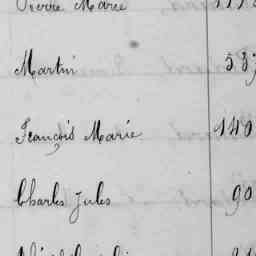 Pierre Marie
Martin 537
François Marie 140
Charles Jules 90